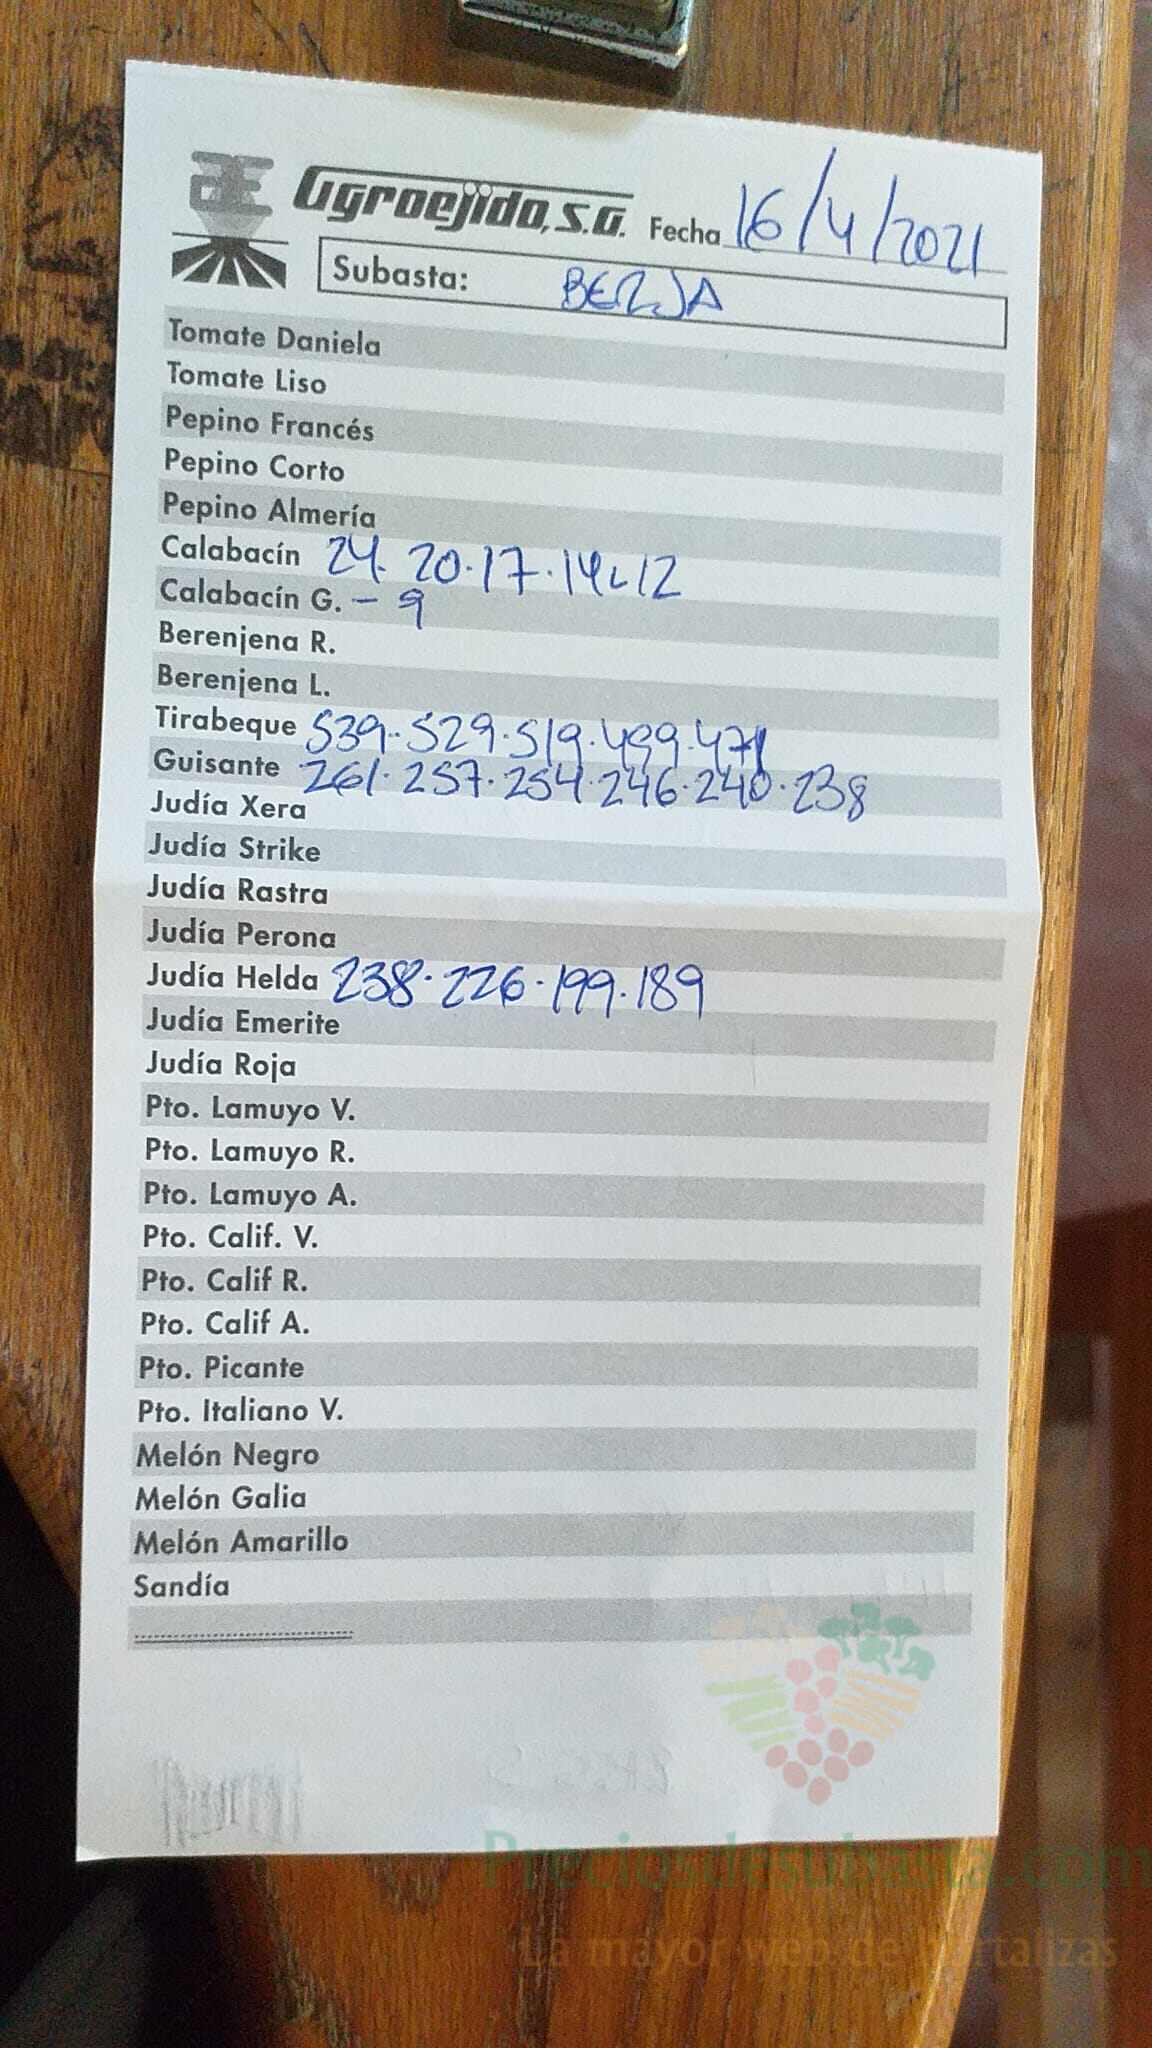 Agroejido, S.A. Fecha 16/4/2021
Subasta: BERJA
Tomate Daniela
Tomate Liso
Pepino Francés
Pepino Corto
Pepino Almería
Calabacín 24. 20.17.14.12
Calabacín G. - 9
Berenjena R.
Berenjena L.
Tirabeque 539.529.519.499.471
Guisante 261.257.254.246.240.238
Judía Xera
Judía Strike
Judía Rastra
Judía Perona
Judía Helda 238.226.199.189
Judía Emerite
Judía Roja
Pto. Lamuyo V.
Pto. Lamuyo R.
Pto. Lamuyo A.
Pto. Calif. V.
Pto. Calif R.
Pto. Calif A.
Pto. Picante
Pto. Italiano V.
Melón Negro
Melón Galia
Melón Amarillo
Sandía
Preciosdesubasta.com
La mayor web de hortalizas